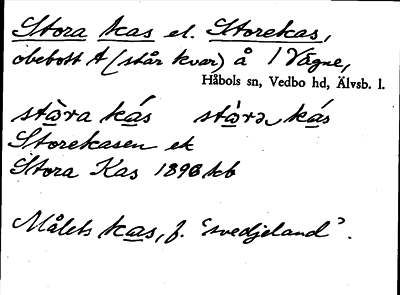 Stora kas el. Storekas,
obebott t (står kvar) å 1 Vågne,
Håbols sn, Vedbo hd, Älvsb. l.
stòra kás stòrə kás
Storekasen ek
Stora Kas 1896 kb
Målets kas, f. "svedjeland".